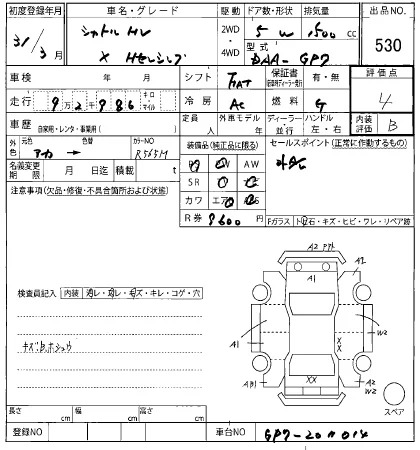 初度登録年月 車名・グレード 駆動 ドア数・形状 排気量 出品NO.
31/3月 シャトル HV 2WD・4WD 5 W 1500 cc 530
X Hセンシング 型式 DAA-GP7
車検 年 月 シフト FAT 保証書 有・無 評価点
走行 9万2千986 キロ マイル 冷房 AC 燃料 G 4
車歴 自家用・レンタ・事業用( ) 定員 人 外車モデル 年 ディーラー 並行 ハンドル 左・右 内装評価 B
外色 元色 色替 カラーNO 装備品(純正品に限る) セールスポイント(正常に作動するもの)
アカ → R565M AW
名義変更期限 月 日迄 積載 t SR
注意事項(欠品・修復・不具合箇所および状態) カワ エア
R券 9600円 Fガラス トビ石・キズ・ヒビ・ワレ・リペア跡
A2
A1 A2
検査員記入 内装 汚レ・スレ・キズ・キレ・コゲ・穴
A1 X W2
X
XX A2
W2
スペア
長さ cm 幅 cm 高さ cm
登録NO 車台NO. GP7-2011014